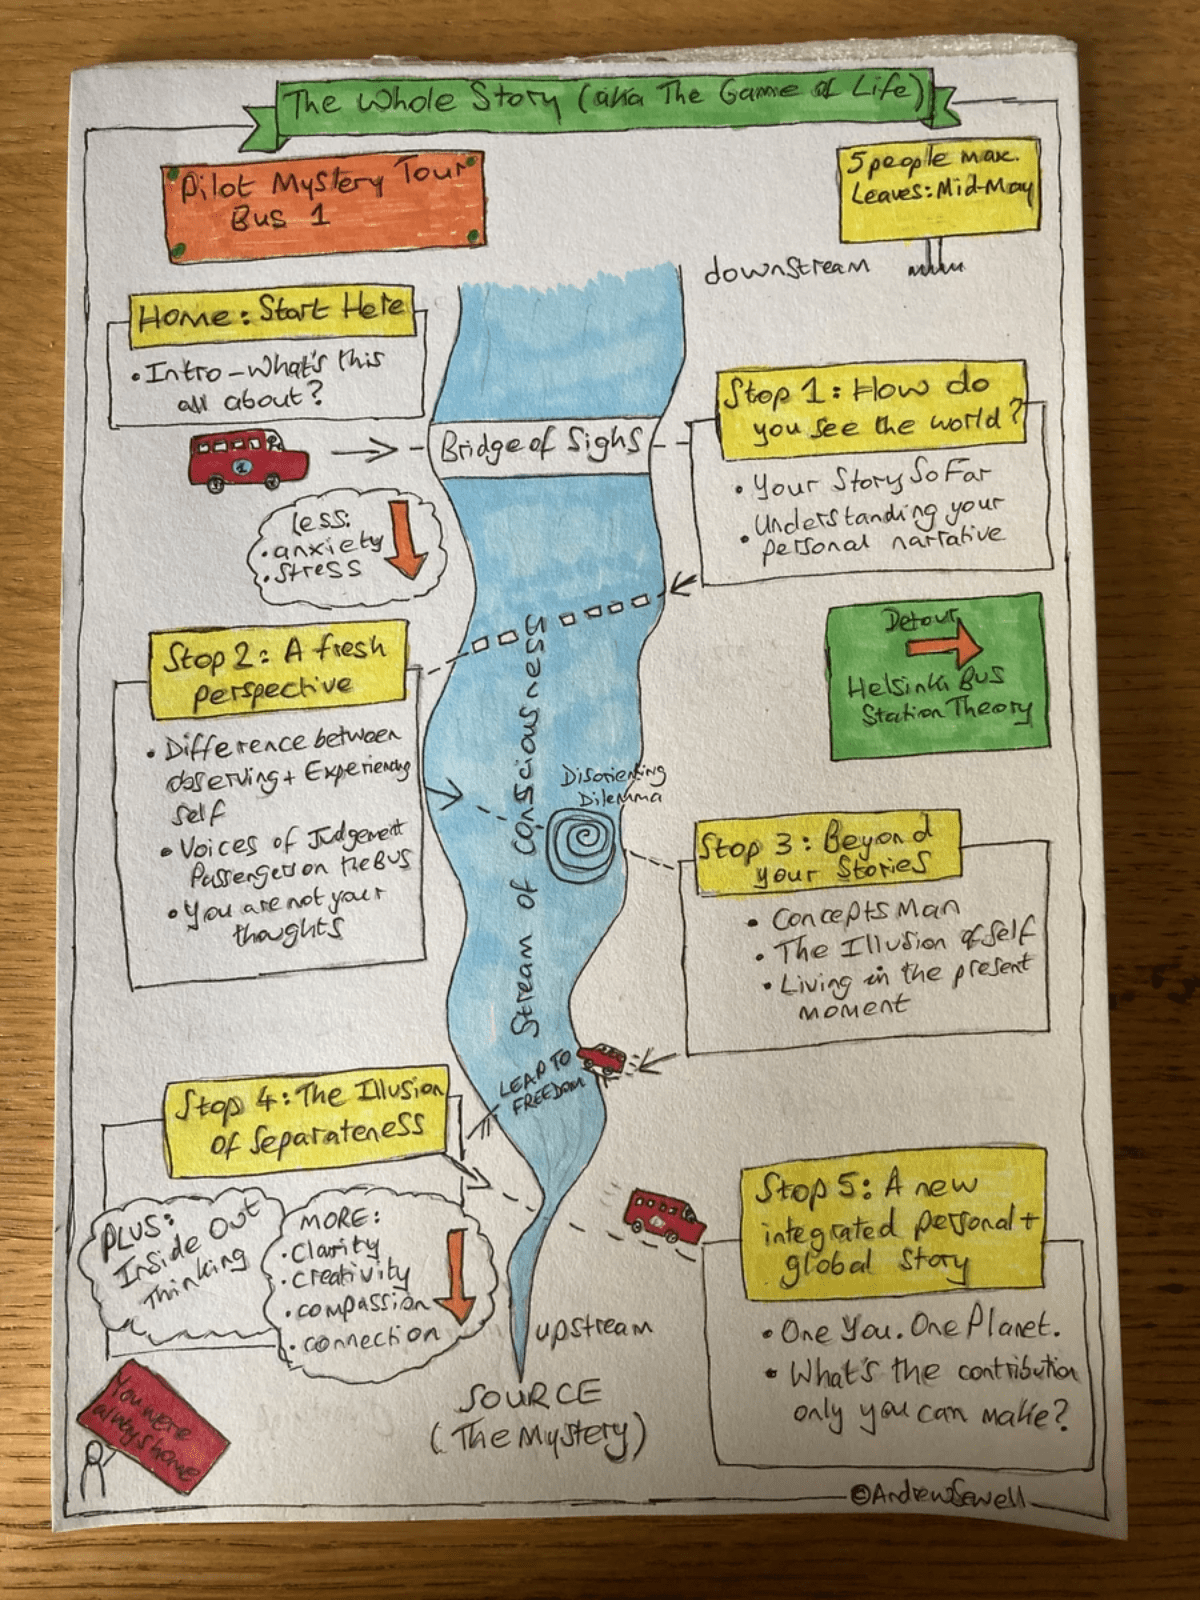 The Whole Story (aka The Game of Life)
Pilot Mystery Tour
Bus 1
5 people max.
Leaves: Mid-May
downstream
Home: Start Here
• Intro - What's this
all about?
Bridge of Sighs
Stop 1: How do
you see the world?
• Your Story So Far
• Understanding your
personal narrative
Less:
• anxiety
• stress
Stop 2: A fresh
perspective
• Difference between
observing + Experiencing
self
• Voices of Judgement
Passengers on the Bus
• You are not your
thoughts
Detour
Helsinki Bus
Station Theory
Stream of consciousness
Disorienting
Dilemma
Stop 3: Beyond
your Stories
• Concepts Man
• The Illusion of Self
• Living in the present
moment
LEAP TO
FREEDOM
Stop 4: The Illusion
of Separateness
PLUS:
Inside Out
Thinking
MORE:
• Clarity
• creativity
• compassion
• connection
Stop 5: A new
integrated personal +
global story
• One You. One Planet.
• What's the contribution
only you can make?
upstream
SOURCE
(The Mystery)
You were
always home
1
©AndrewSewell